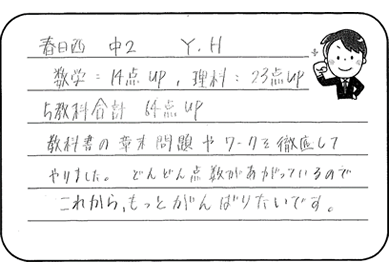 春日西 中2 Y.H
数学：14点up，理科：23点up
5教科合計 64点up
教科書の章末問題やワークを徹底して
やりました。どんどん点数があがっているので
これから、もっとがんばりたいです。